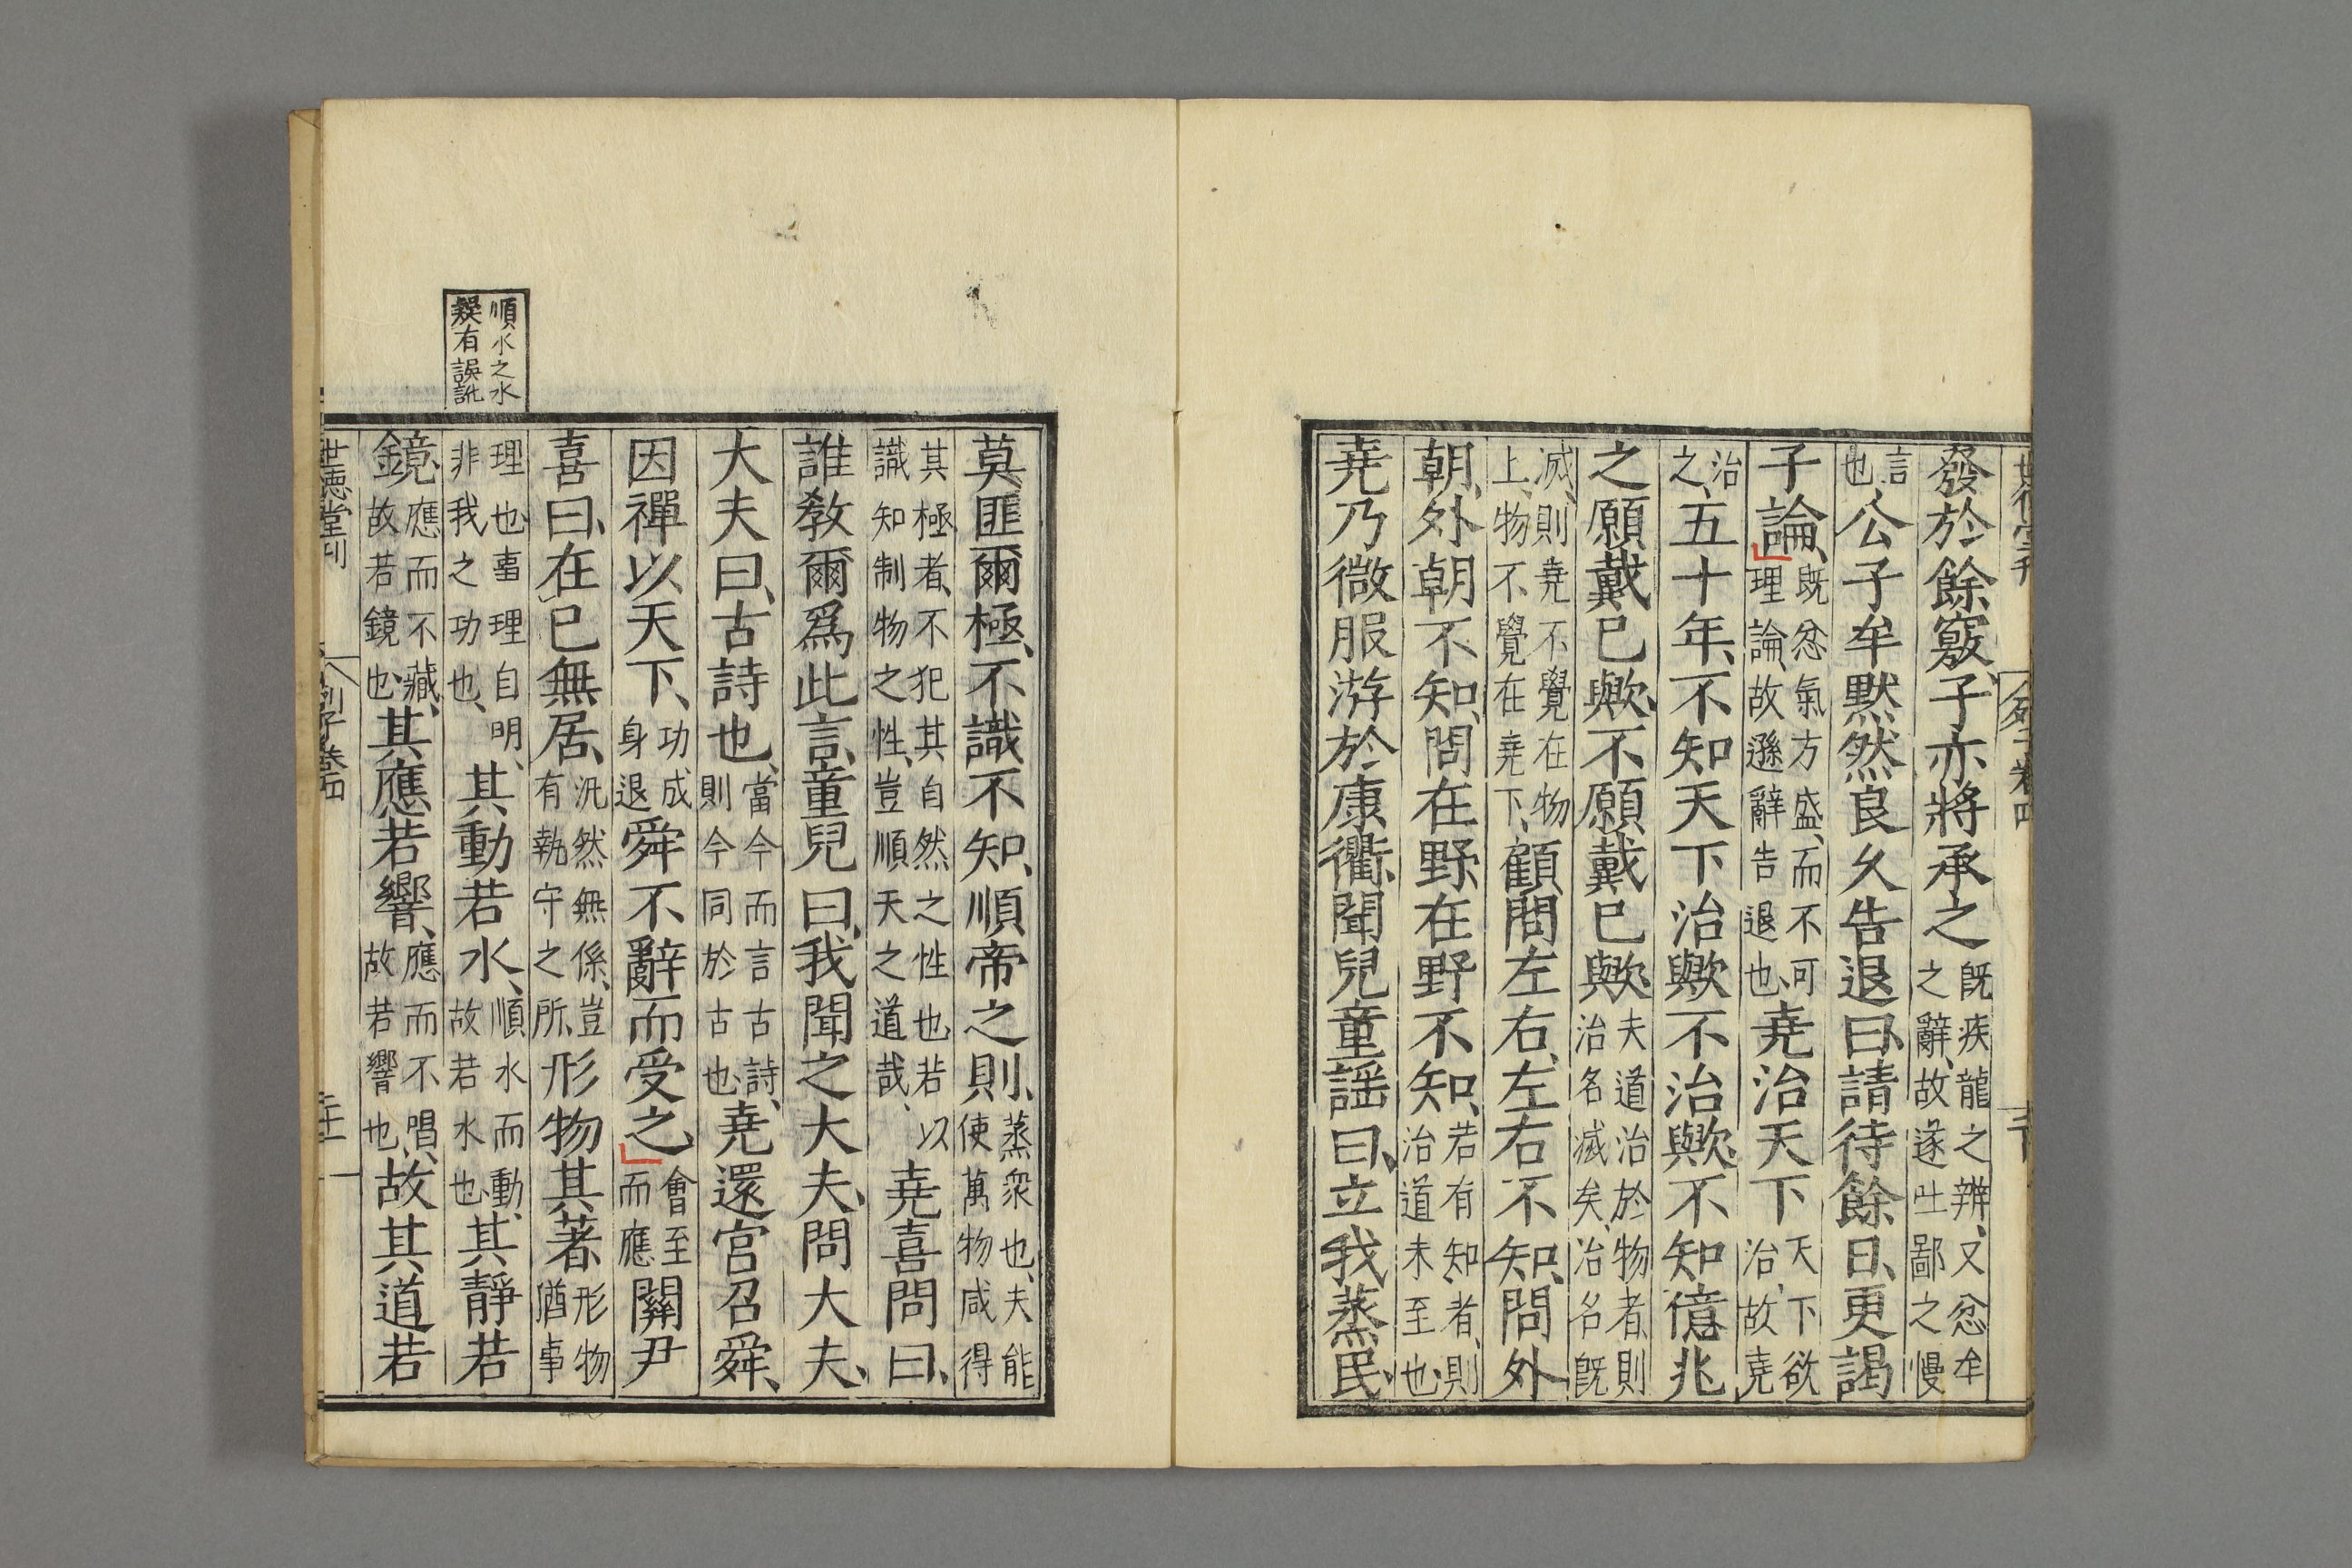 發於餘竅、子亦將承之既疾龍之辨、又忿牟之辭、故遂吐鄙之慢
言也、公子牟默然良久告退曰、請待餘日、更謁
子論、既忿氣方盛、而不可理論、故遜辭告退也、堯治天下天下欲治、故堯
治之、五十年、不知天下治歟不治歟、不知億兆
之願戴已歟、不願戴已歟、夫道治於物者、則治名滅矣、治名既
滅、則堯不覺在物上、物不覺在堯下、顧問左右、左右不知、問外
朝、外朝不知、問在野、在野不知、若有知者、則治道未至也、
堯乃微服游於康衢、聞兒童謡曰、立我蒸民、
莫匪爾極、不識不知、順帝之則、蒸衆也、夫能使萬物咸得
其極者、不犯其自然之性也若以識知制物之性、豈順天之道哉、堯喜問曰、
誰敎爾爲此言、童兒曰、我聞之大夫、問大夫、
大夫曰、古詩也、當今而言古詩、則今同於古也、堯還宮召舜、
因禪以天下、功成身退舜不辭而受之會至而應關尹
喜曰、在已無居、汎然無係、豈有執守之所、形物其著、形物猶事
理也、事理自明、非我之功也、其動若水、順水而動、故若水也、其靜若
鏡、應而不藏、故若鏡也、其應若響、應而不唱、故若響也、故其道若
順水之水
疑有誤訛
世德堂刊
列子卷四
二十一